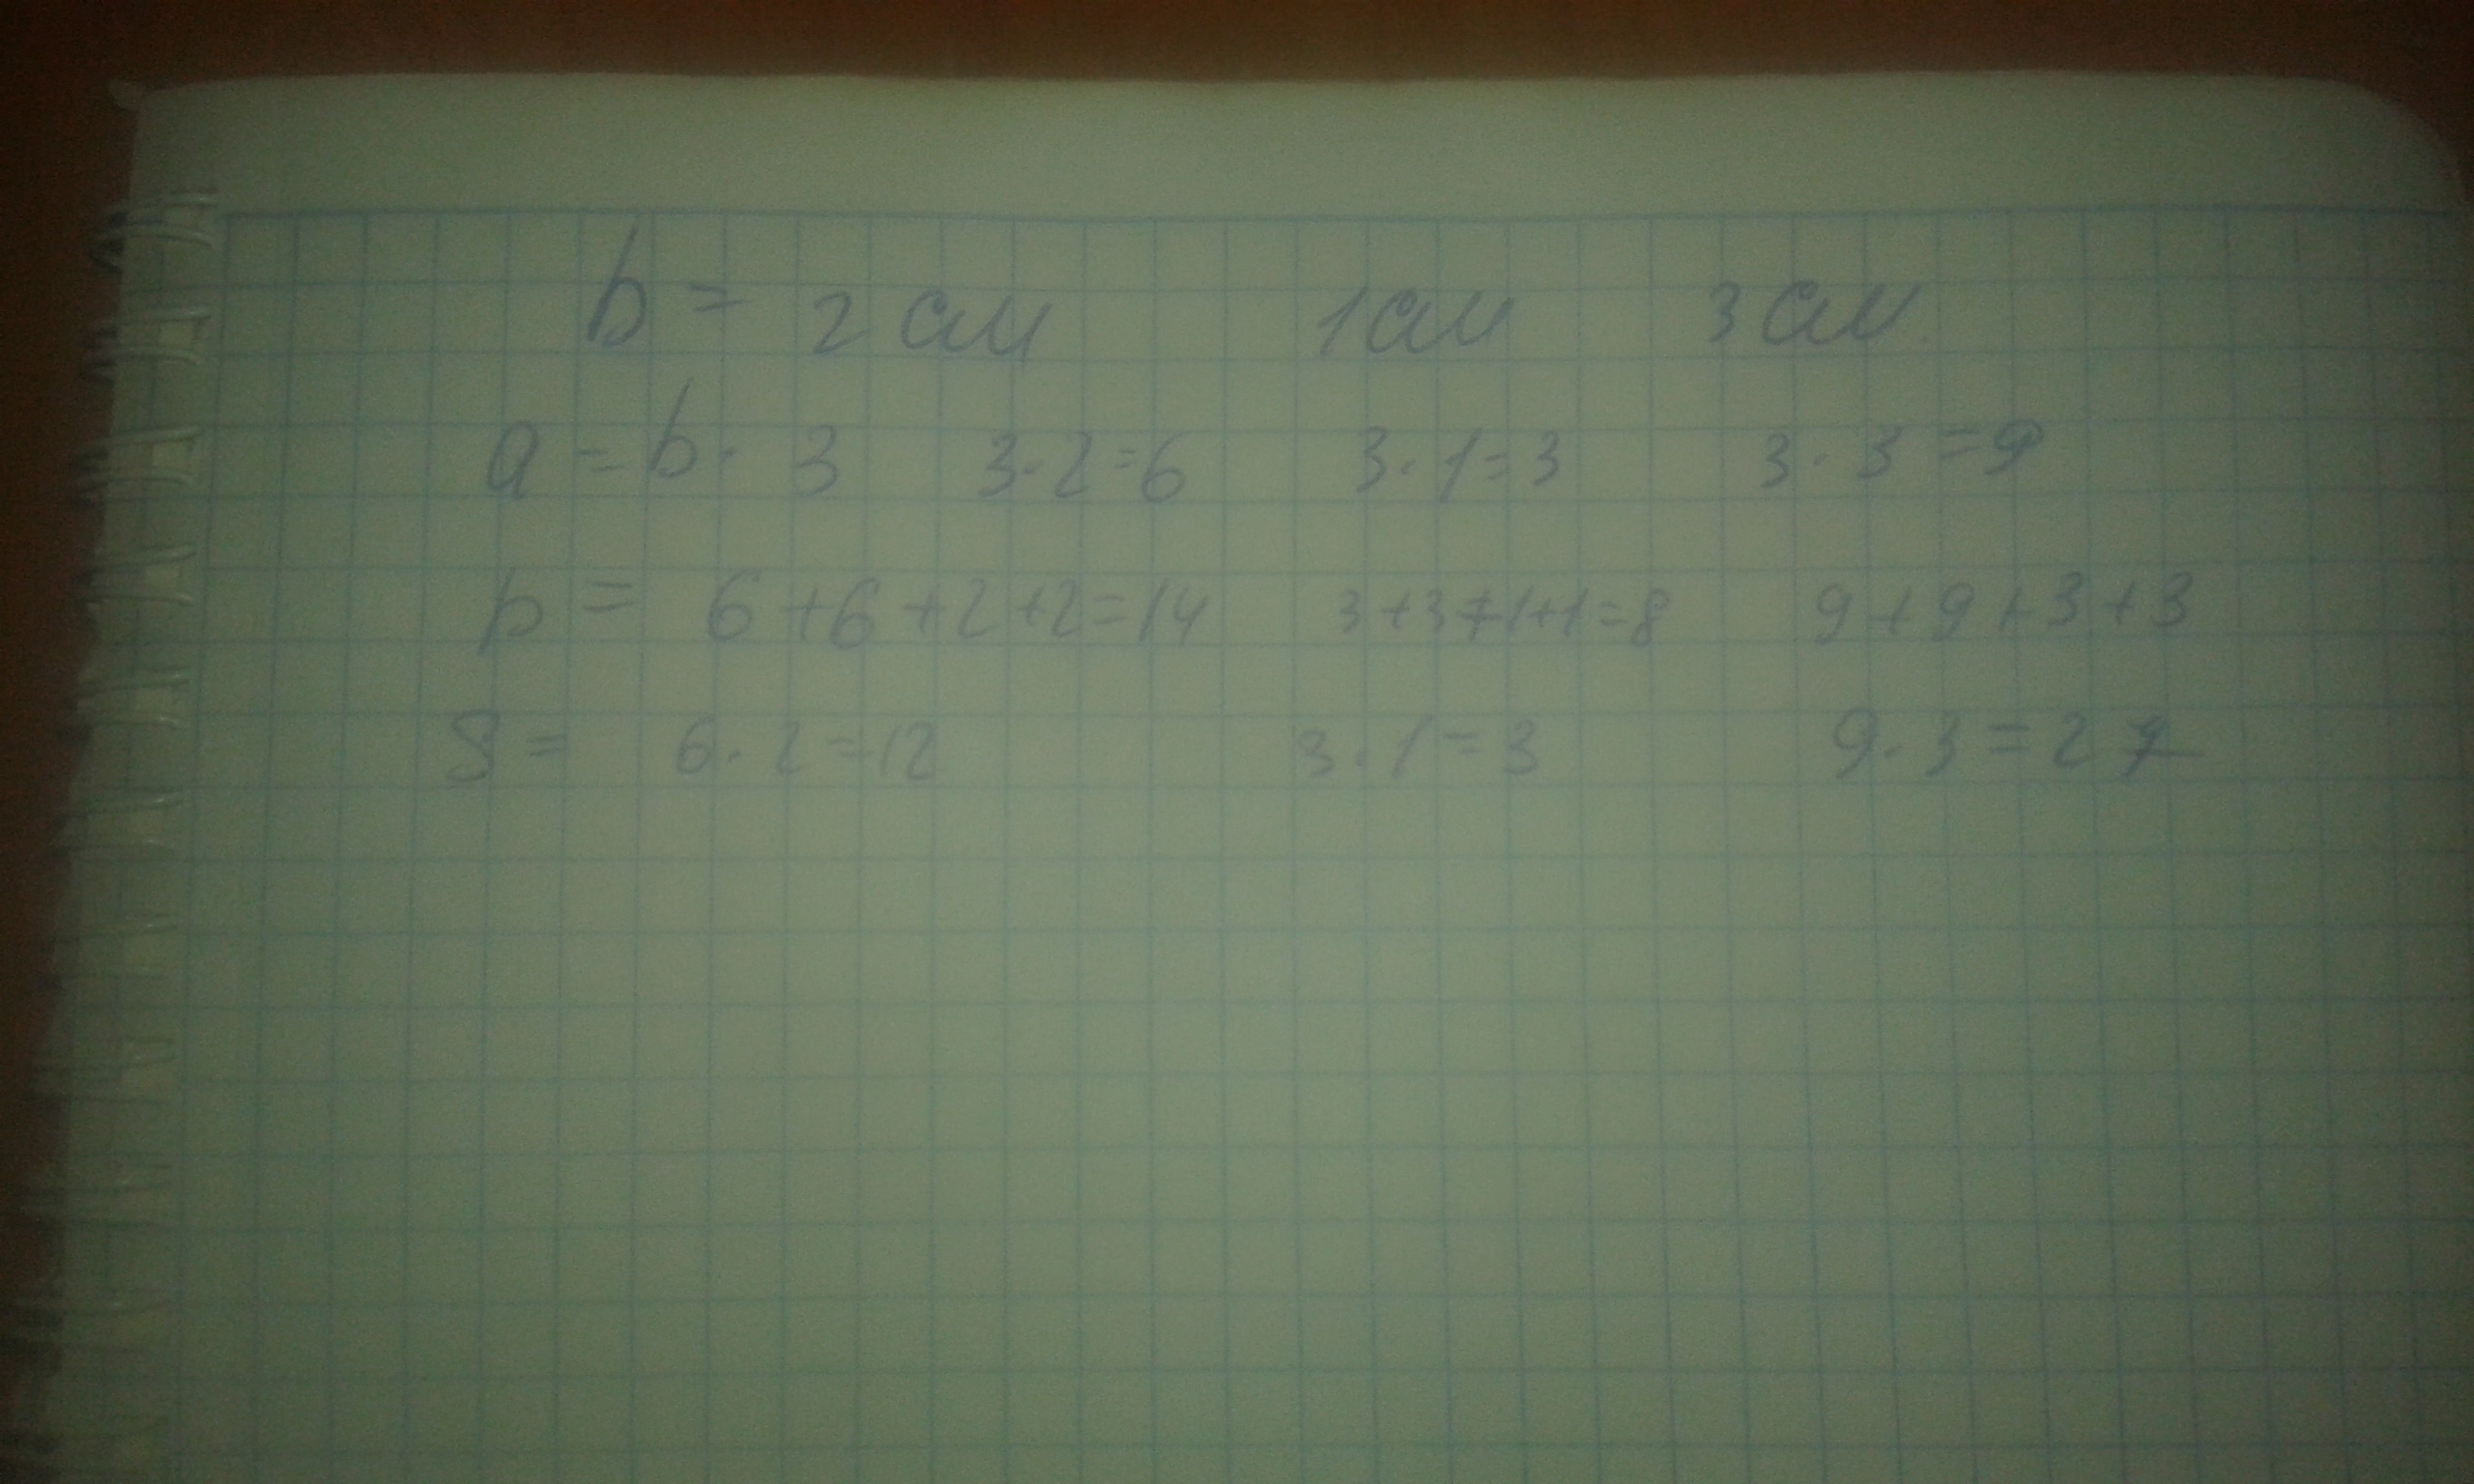 b = 2 см 1 см 3 см
a = b · 3 3·2=6 3·1=3 3·3=9
p = 6+6+2+2=14 3+3+1+1=8 9+9+3+3
S = 6·2=12 3·1=3 9·3=27